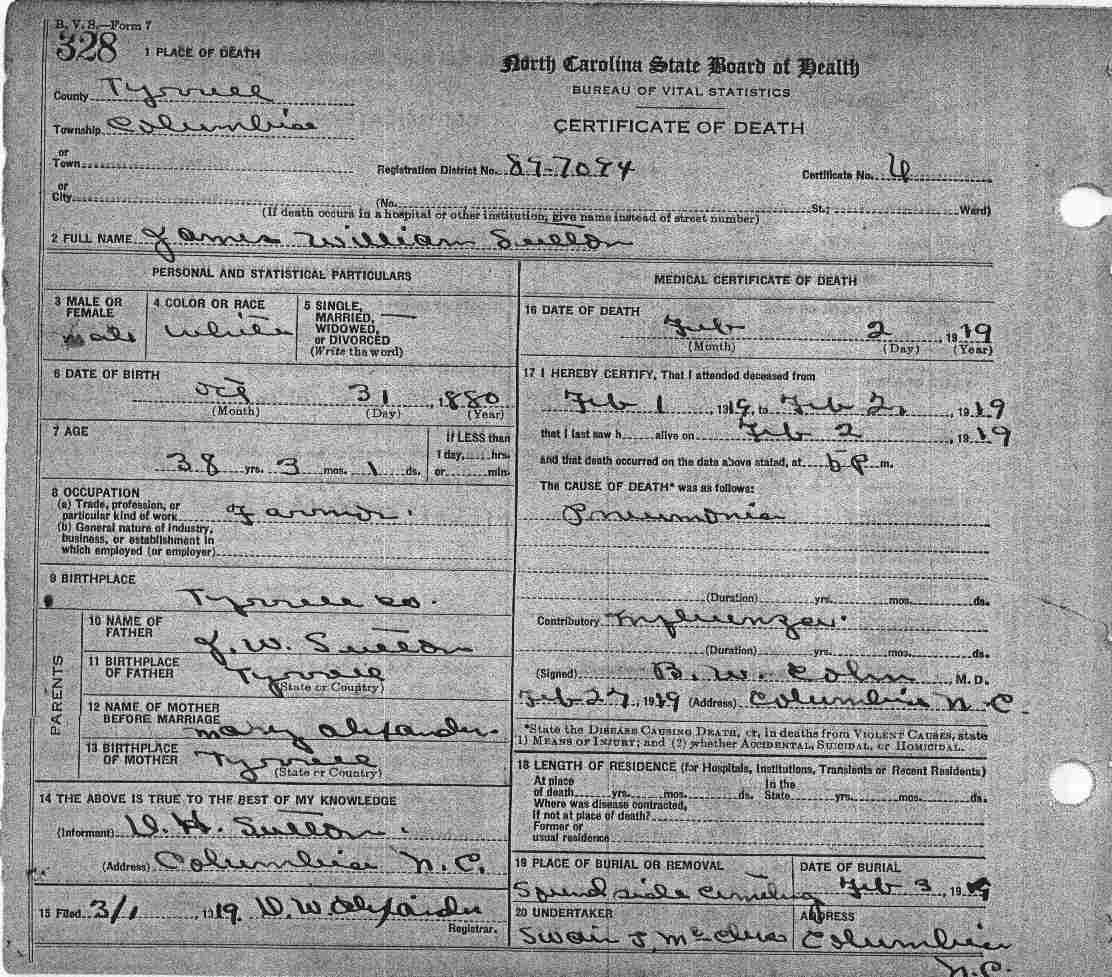 B. V. S.—Form 7
328
1 PLACE OF DEATH
County Tyrrell
Township Columbia
or
Town
or
City
North Carolina State Board of Health
BUREAU OF VITAL STATISTICS
CERTIFICATE OF DEATH
Registration District No. 89-7094 Certificate No. 4
(No. St.; Ward)
(If death occurs in a hospital or other institution, give name instead of street number)
2 FULL NAME James William Sutton
PERSONAL AND STATISTICAL PARTICULARS
3 MALE OR FEMALE
Male
4 COLOR OR RACE
White
5 SINGLE,
MARRIED, —
WIDOWED,
or DIVORCED
(Write the word)
6 DATE OF BIRTH
Oct 31, 1880
(Month) (Day) (Year)
7 AGE
38 yrs. 3 mos. 1 ds.
If LESS than
1 day, hrs.
or min.
8 OCCUPATION
(a) Trade, profession, or
particular kind of work Farmor.
(b) General nature of industry,
business, or establishment in
which employed (or employer)
9 BIRTHPLACE
Tyrrell Co.
PARENTS
10 NAME OF FATHER
J. W. Sutton
11 BIRTHPLACE OF FATHER
Tyrrell
(State or Country)
12 NAME OF MOTHER BEFORE MARRIAGE
Mary Alexander
13 BIRTHPLACE OF MOTHER
Tyrrell
(State or Country)
14 THE ABOVE IS TRUE TO THE BEST OF MY KNOWLEDGE
(Informant) D. H. Sutton
(Address) Columbia N.C.
15 Filed 3/1, 1919. D. W. Alexander
Registrar.
MEDICAL CERTIFICATE OF DEATH
16 DATE OF DEATH
Feb 2, 1919
(Month) (Day) (Year)
17 I HEREBY CERTIFY, That I attended deceased from
Feb 1, 1919, to Feb 2, 1919
that I last saw h alive on Feb 2, 1919
and that death occurred on the date above stated, at P m.
The CAUSE OF DEATH* was as follows:
Pneumonia
(Duration) yrs. mos. ds.
Contributory Influenza.
(Duration) yrs. mos. ds.
(Signed) B. W. Cohn, M.D.
Feb 27, 1919 (Address) Columbia N.C.
*State the DISEASE CAUSING DEATH, or, in deaths from VIOLENT CAUSES, state
1) MEANS OF INJURY; and (2) whether ACCIDENTAL, SUICIDAL, or HOMICIDAL.
18 LENGTH OF RESIDENCE (for Hospitals, Institutions, Transients or Recent Residents)
At place of death yrs. mos. ds. In the State yrs. mos. ds.
Where was disease contracted,
If not at place of death?
Former or
usual residence
19 PLACE OF BURIAL OR REMOVAL
DATE OF BURIAL
Feb 3, 1919
20 UNDERTAKER
Swain & Mc
ADDRESS
Columbia
N.C.